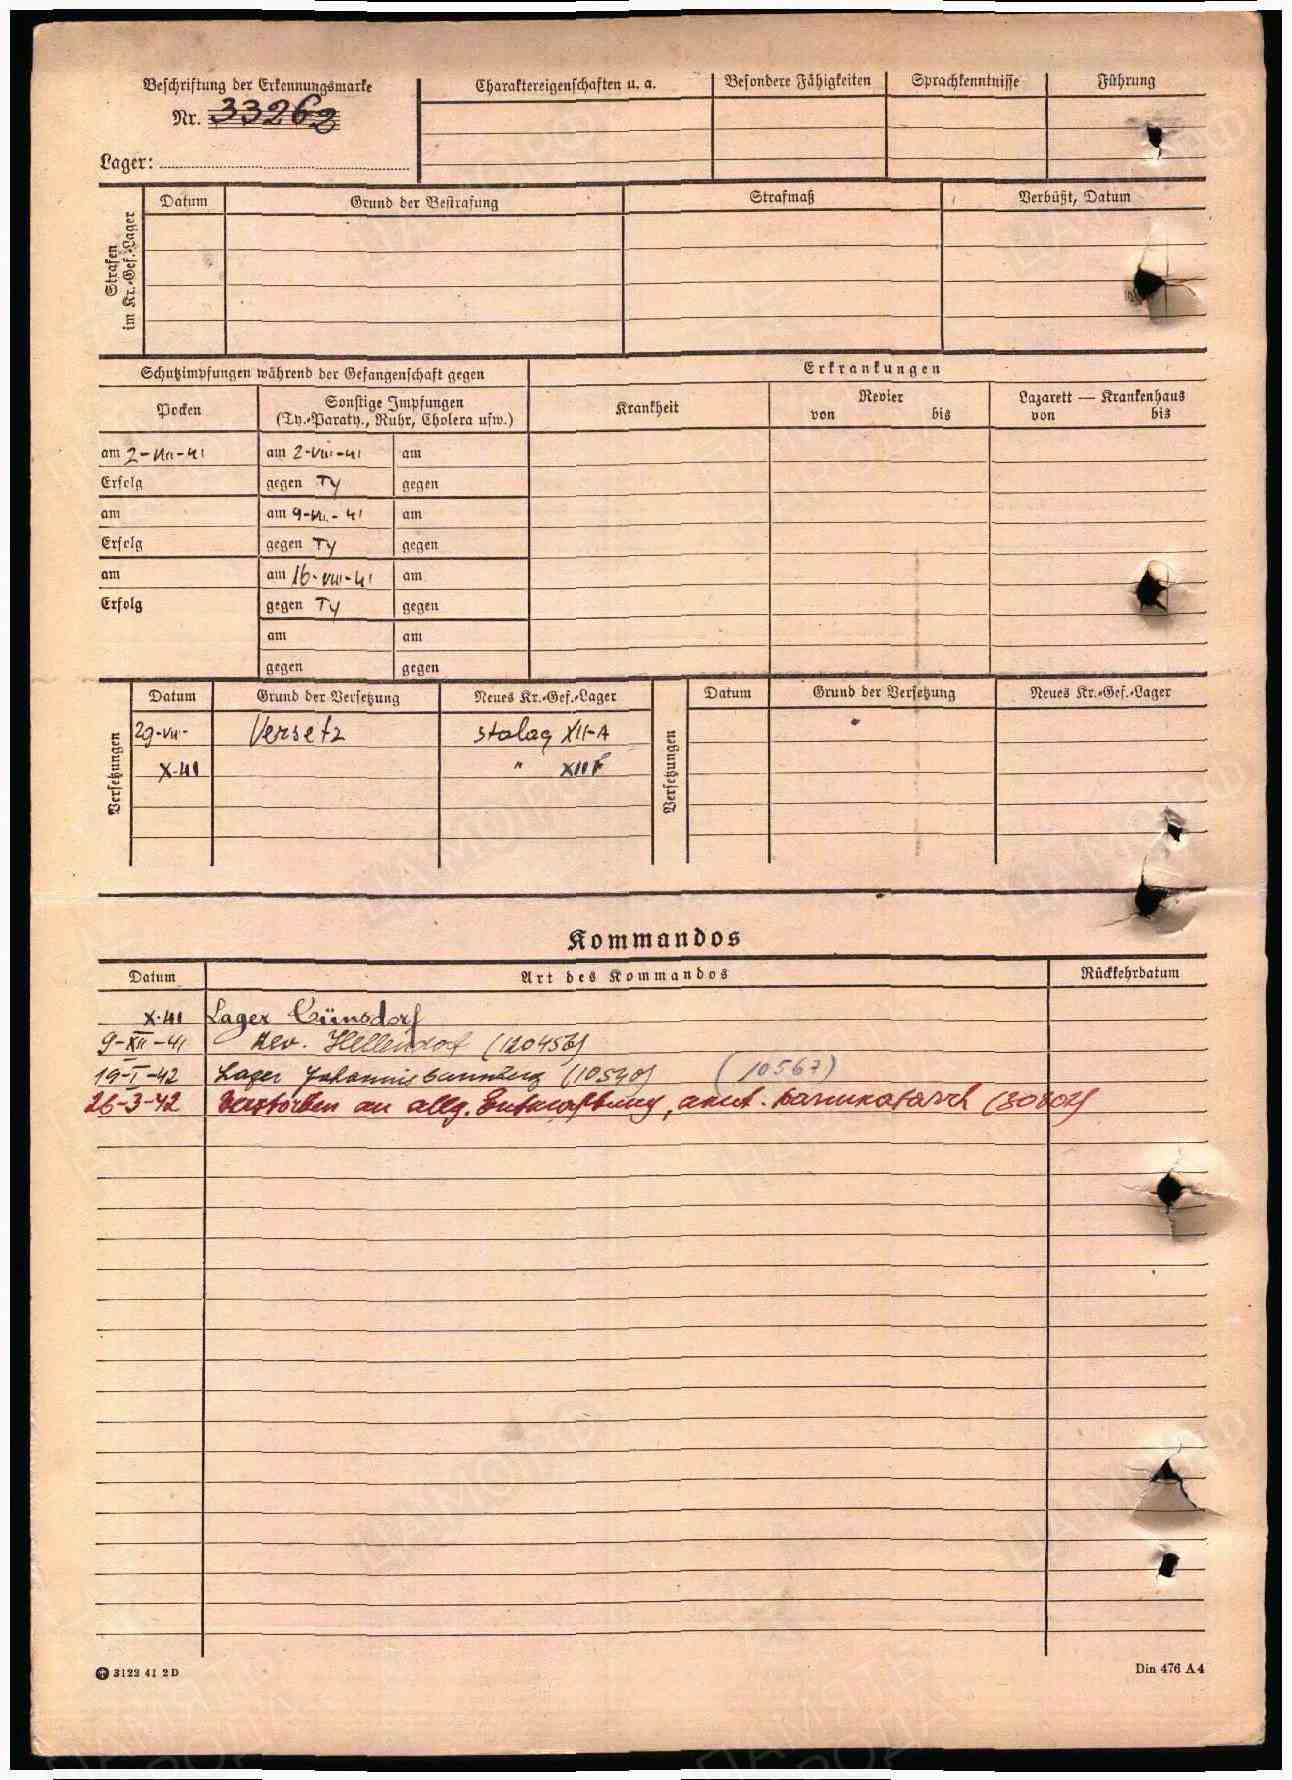 Beschriftung der Erkennungsmarke
Nr. 33262
Lager:
Charaktereigenschaften u. a.
Besondere Fähigkeiten
Sprachkenntnisse
Führung
Strafen im Kr.-Gef.-Lager
Datum
Grund der Bestrafung
Strafmaß
Verbüßt, Datum
Schutzimpfungen während der Gefangenschaft gegen
Erkrankungen
Pocken
Sonstige Impfungen
(Ty.-Paraty., Ruhr, Cholera usw.)
Krankheit
Revier
von bis
Lazarett — Krankenhaus
von bis
am 2-VIII-41 am 2-VIII-41 am
Erfolg gegen Ty gegen
am am 9-VIII-41 am
Erfolg gegen Ty gegen
am am 16-VIII-41 am
Erfolg gegen Ty gegen
am am
gegen gegen
Versetzungen
Datum Grund der Versetzung Neues Kr.-Gef.-Lager
29-VII- Versetz Stalag XII-A
X-41 " XII F
Versetzungen
Datum Grund der Versetzung Neues Kr.-Gef.-Lager
Kommandos
Datum Art des Kommandos Rückkehrdatum
X-41 Lager
9-XII-41 Rev. Hellendorf
19-I-42 Lager Johannisbannberg (10540) (10567)
26-3-42 Verstorben an allg. Entkräftung,
3123 41 2 D
Din 476 A 4